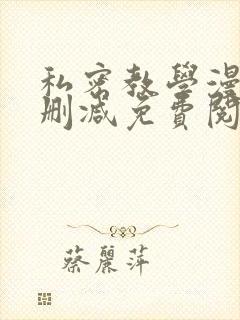 私密教學漫
刪減免費閱
蔡麗萍